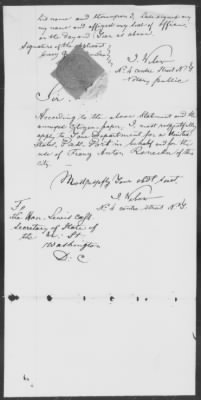 his name and thereupon I, have signed my
my name and affixed my Seal of Office
on the day and Year as above.
Signature of the applicant
No. 4 centre Street N.Y.
Notary public
Sir.
According to the above Statement and the
annexed Citizen paper, I most respectfully
apply to your Department for a United
States Pass Port in behalf and for the
use of Franz Anton of this
city.
Most respectfully Your obdt. Servt.
No. 4 centre street N.Y.
To
the Hon. Lewis Cass
Secretary of State of
the St.
Washington
D. C